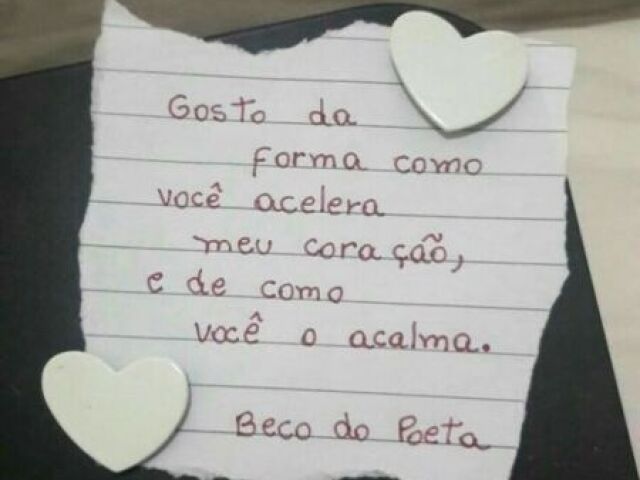 Gosto da
forma como
você acelera
meu coração,
e de como
você o acalma.
Beco do Poeta